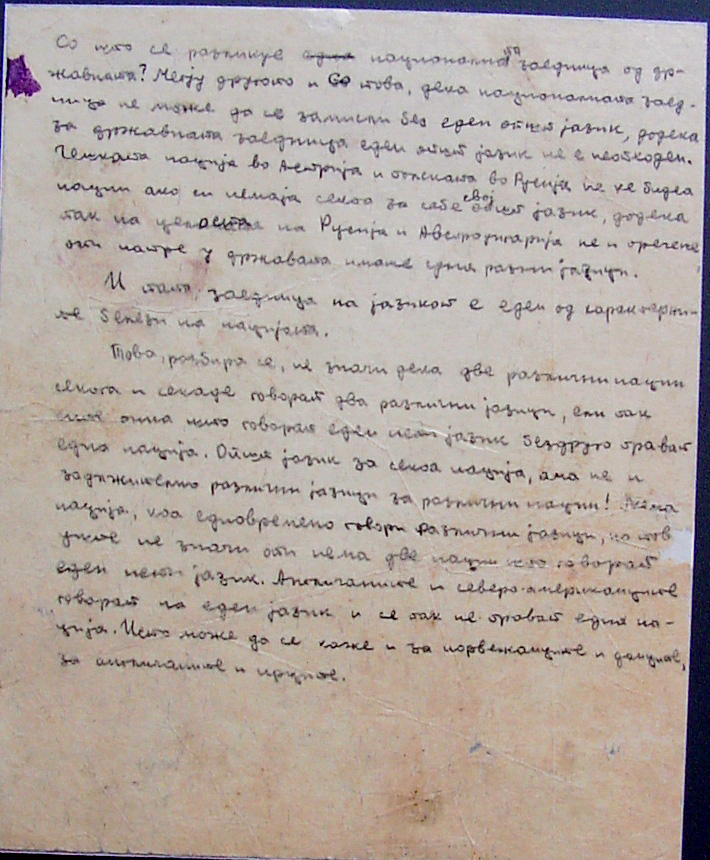 Со што се разликуе една националната заедница од др-
жавната? Меѓу другото и со това, дека националната заед-
ница не може да се замисли без еден општ јазик, додека
за државната заедница еден општ јазик не е необходен.
Чешката нација во Австрија и полската во Русија не ќе бидеа
нации ако си немаја секоа за себе свој општ јазик, додека
так на целоста на Русија и Австроунгарија не и пречеше
оти натре у државата имаше разни јазици.
И тата, заедница на јазикот е еден од характерни-
те белези на нацијата.
Това, разбира се, не значи дека две различни нации
секога и секаде говорат два различни јазици, или так
сите онија што говорат еден исти јазик бездруго прават
една нација. Општ јазик за секоа нација, ама не и
задлжително различни јазици за различни нации! Нема
нација, коа едновремено говори различни јазици, но тов
уште не значи оти нема две нации што говорат
еден исти јазик. Англичаните и северо-американците
говорат на еден јазик и се так не прават една на-
ција. Исто може да се каже и за норвежанците и данците,
за англичаните и ирците.